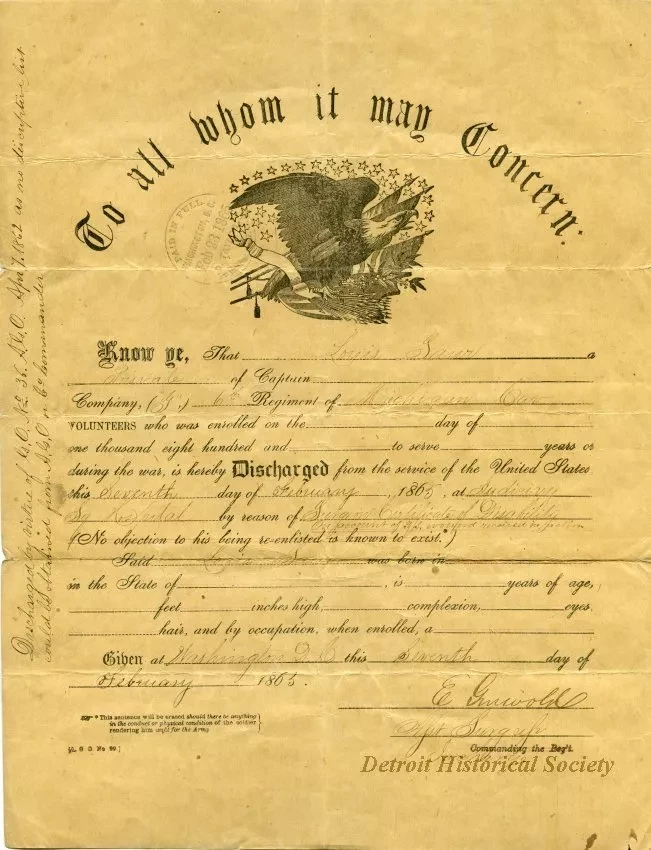 To all whom it may Concern:
PAID IN FULL
Know ye, That Louis a
Private of Captain
Company, ( ) 6th Regiment of Michigan Cav
VOLUNTEERS who was enrolled on the day of
one thousand eight hundred and to serve years or
during the war, is hereby Discharged from the service of the United States
this Seventh day of February, 1865, at Judiciary
Sq Hospital by reason of Surgeons Certificate of Disability
by account of wound received in action
(No objection to his being re-enlisted is known to exist.*)
Said Louis was born in
in the State of , is years of age,
feet inches high, complexion, eyes,
hair, and by occupation, when enrolled, a
Given at Washington D.C. this Seventh day of
February 1865.
E Griswold
Commanding the Reg't.
* This sentence will be erased should there be anything
in the conduct or physical condition of the soldier
rendering him unfit for the Army
[A. G. O. No 99.]
Discharged by virtue of G.O. No 36. A.G.O. Apr 7, 1862 as no discriptive list
could be obtained from A.G.O. or Co commander
Detroit Historical Society